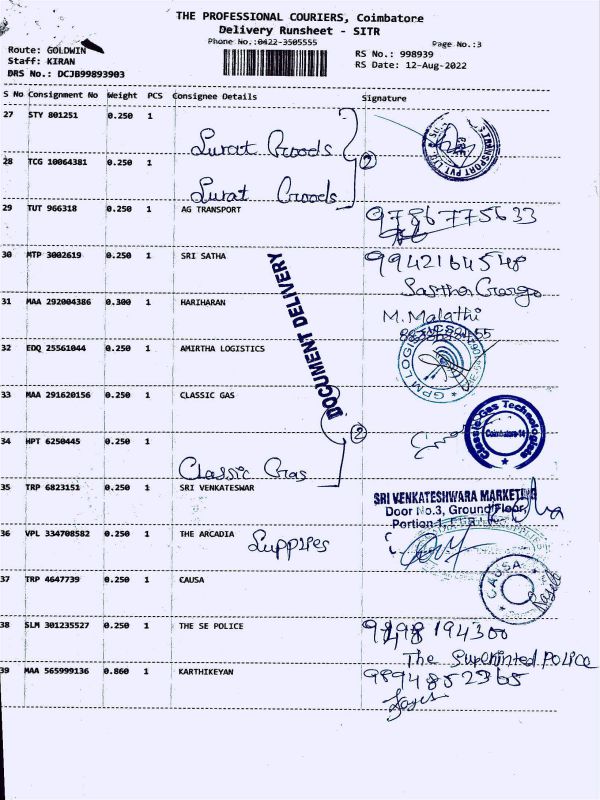 THE PROFESSIONAL COURIERS, Coimbatore
Delivery Runsheet - SITR
Phone No.:0422-3505555
Page No.:3
Route: GOLDWIN
Staff: KIRAN
DRS No.: DCJB99893903
RS No.: 998939
RS Date: 12-Aug-2022
S No Consignment No Weight PCS Consignee Details Signature
27 STY 801251 0.250 1
Surat Goods
28 TCG 10064381 0.250 1
2
Surat Goods
29 TUT 966318 0.250 1 AG TRANSPORT 9786775633
30 MTP 3002619 0.250 1 SRI SATHA 9942164548
Sastha Cargo
31 MAA 292004386 0.300 1 HARIHARAN M. Malathi
DOCUMENT DELIVERY
32 EDQ 25561044 0.250 1 AMIRTHA LOGISTICS
GPM LOGIS
33 MAA 291620156 0.250 1 CLASSIC GAS
Classic Gas Technologists
Coimbatore-14
34 HPT 6250445 0.250 1
2
Classic Gas
35 TRP 6823151 0.250 1 SRI VENKATESWAR
SRI VENKATESHWARA MARKETING
Door No.3, Ground Floor,
Portion 1
36 VPL 334708582 0.250 1 THE ARCADIA
Suppires
37 TRP 4647739 0.250 1 CAUSA
CAUSA
38 SLM 301235527 0.250 1 THE SE POLICE 9498194300
The Superinted POLICE
39 MAA 565999136 0.860 1 KARTHIKEYAN 9894852365